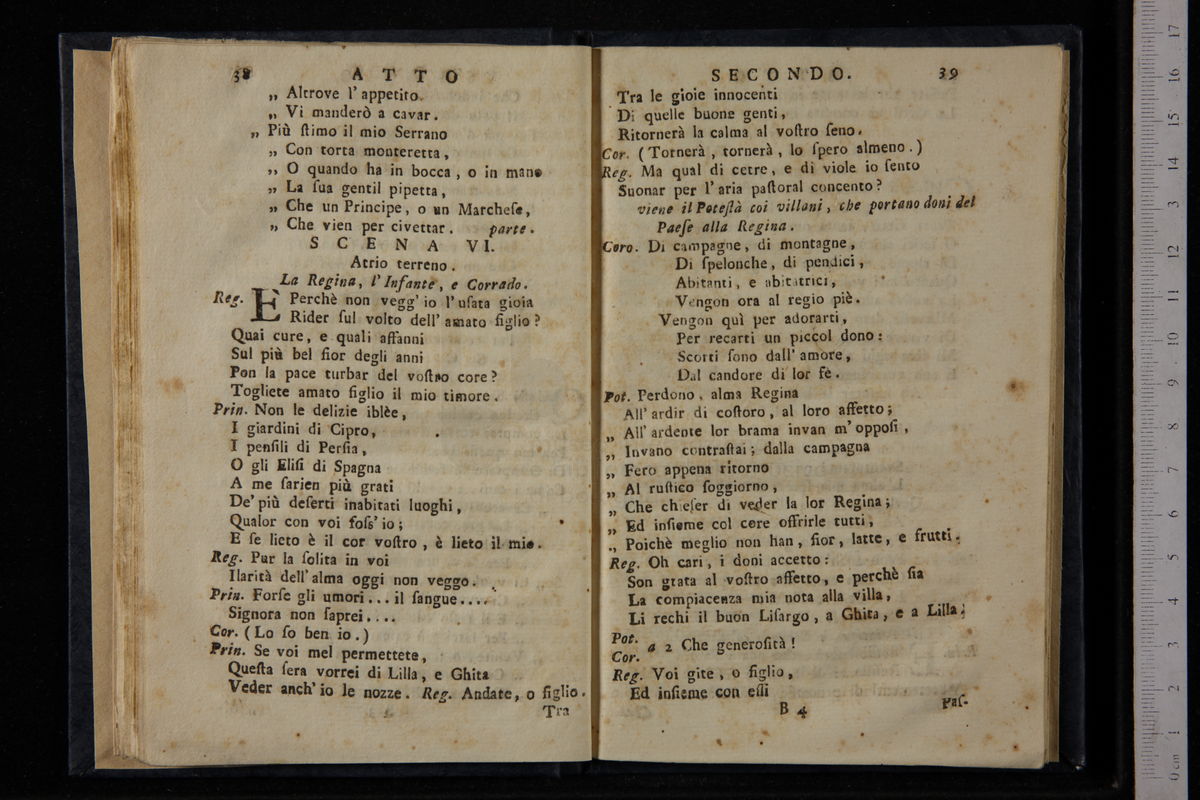 38 ATTO
„ Altrove l'appetito
„ Vi manderò a cavar.
„ Più ſtimo il mio Serrano
„ Con torta monteretta,
„ O quando ha in bocca, o in mano
„ La ſua gentil pipetta,
„ Che un Principe, o un Marcheſe,
„ Che vien per civettar. parte.
SCENA VI.
Atrio terreno.
La Regina, l'Infante, e Corrado.
Reg. È Perchè non vegg'io l'uſata gioia
Rider ſul volto dell'amato figlio?
Quai cure, e quali affanni
Sul più bel fior degli anni
Pon la pace turbar del voſtro core?
Togliete amato figlio il mio timore.
Prin. Non le delizie iblèe,
I giardini di Cipro,
I penſili di Perſia,
O gli Eliſi di Spagna
A me ſarien più grati
De' più deſerti inabitati luoghi,
Qualor con voi foſs'io;
E ſe lieto è il cor voſtro, è lieto il mio.
Reg. Pur la ſolita in voi
Ilarità dell'alma oggi non veggo.
Prin. Forſe gli umori... il ſangue....
Signora non ſaprei....
Cor. (Lo ſo ben io.)
Prin. Se voi mel permettete,
Queſta ſera vorrei di Lilla, e Ghita
Veder anch'io le nozze. Reg. Andate, o figlio.
Tra
SECONDO. 39
Tra le gioie innocenti
Di quelle buone genti,
Ritornerà la calma al voſtro ſeno.
Cor. (Tornerà, tornerà, lo ſpero almeno.)
Reg. Ma qual di cetre, e di viole io ſento
Suonar per l'aria paſtoral concento?
viene il Poteſtà coi villani, che portano doni del
Paeſe alla Regina.
Coro. Di campagne, di montagne,
Di ſpelonche, di pendici,
Abitanti, e abitatrici,
Vengon ora al regio piè.
Vengon quì per adorarti,
Per recarti un piccol dono:
Scorti ſono dall'amore,
Dal candore di lor fè.
Pot. Perdono, alma Regina
All'ardir di coſtoro, al loro affetto;
„ All'ardente lor brama invan m'oppoſi,
„ Invano contraſtai; dalla campagna
„ Fero appena ritorno
„ Al ruſtico ſoggiorno,
„ Che chieſer di veder la lor Regina;
„ Ed inſieme col core offrirle tutti,
„ Poichè meglio non han, fior, latte, e frutti.
Reg. Oh cari, i doni accetto:
Son grata al voſtro affetto, e perchè ſia
La compiacenza mia nota alla villa,
Li rechi il buon Liſargo, a Ghita, e a Lilla;
Pot.
a 2 Che generoſità!
Cor.
Reg. Voi gite, o figlio,
Ed inſieme con eſſi
B 4 Paſ-
0 cm 1 2 3 4 5 6 7 8 9 10 11 12 13 14 15 16 17